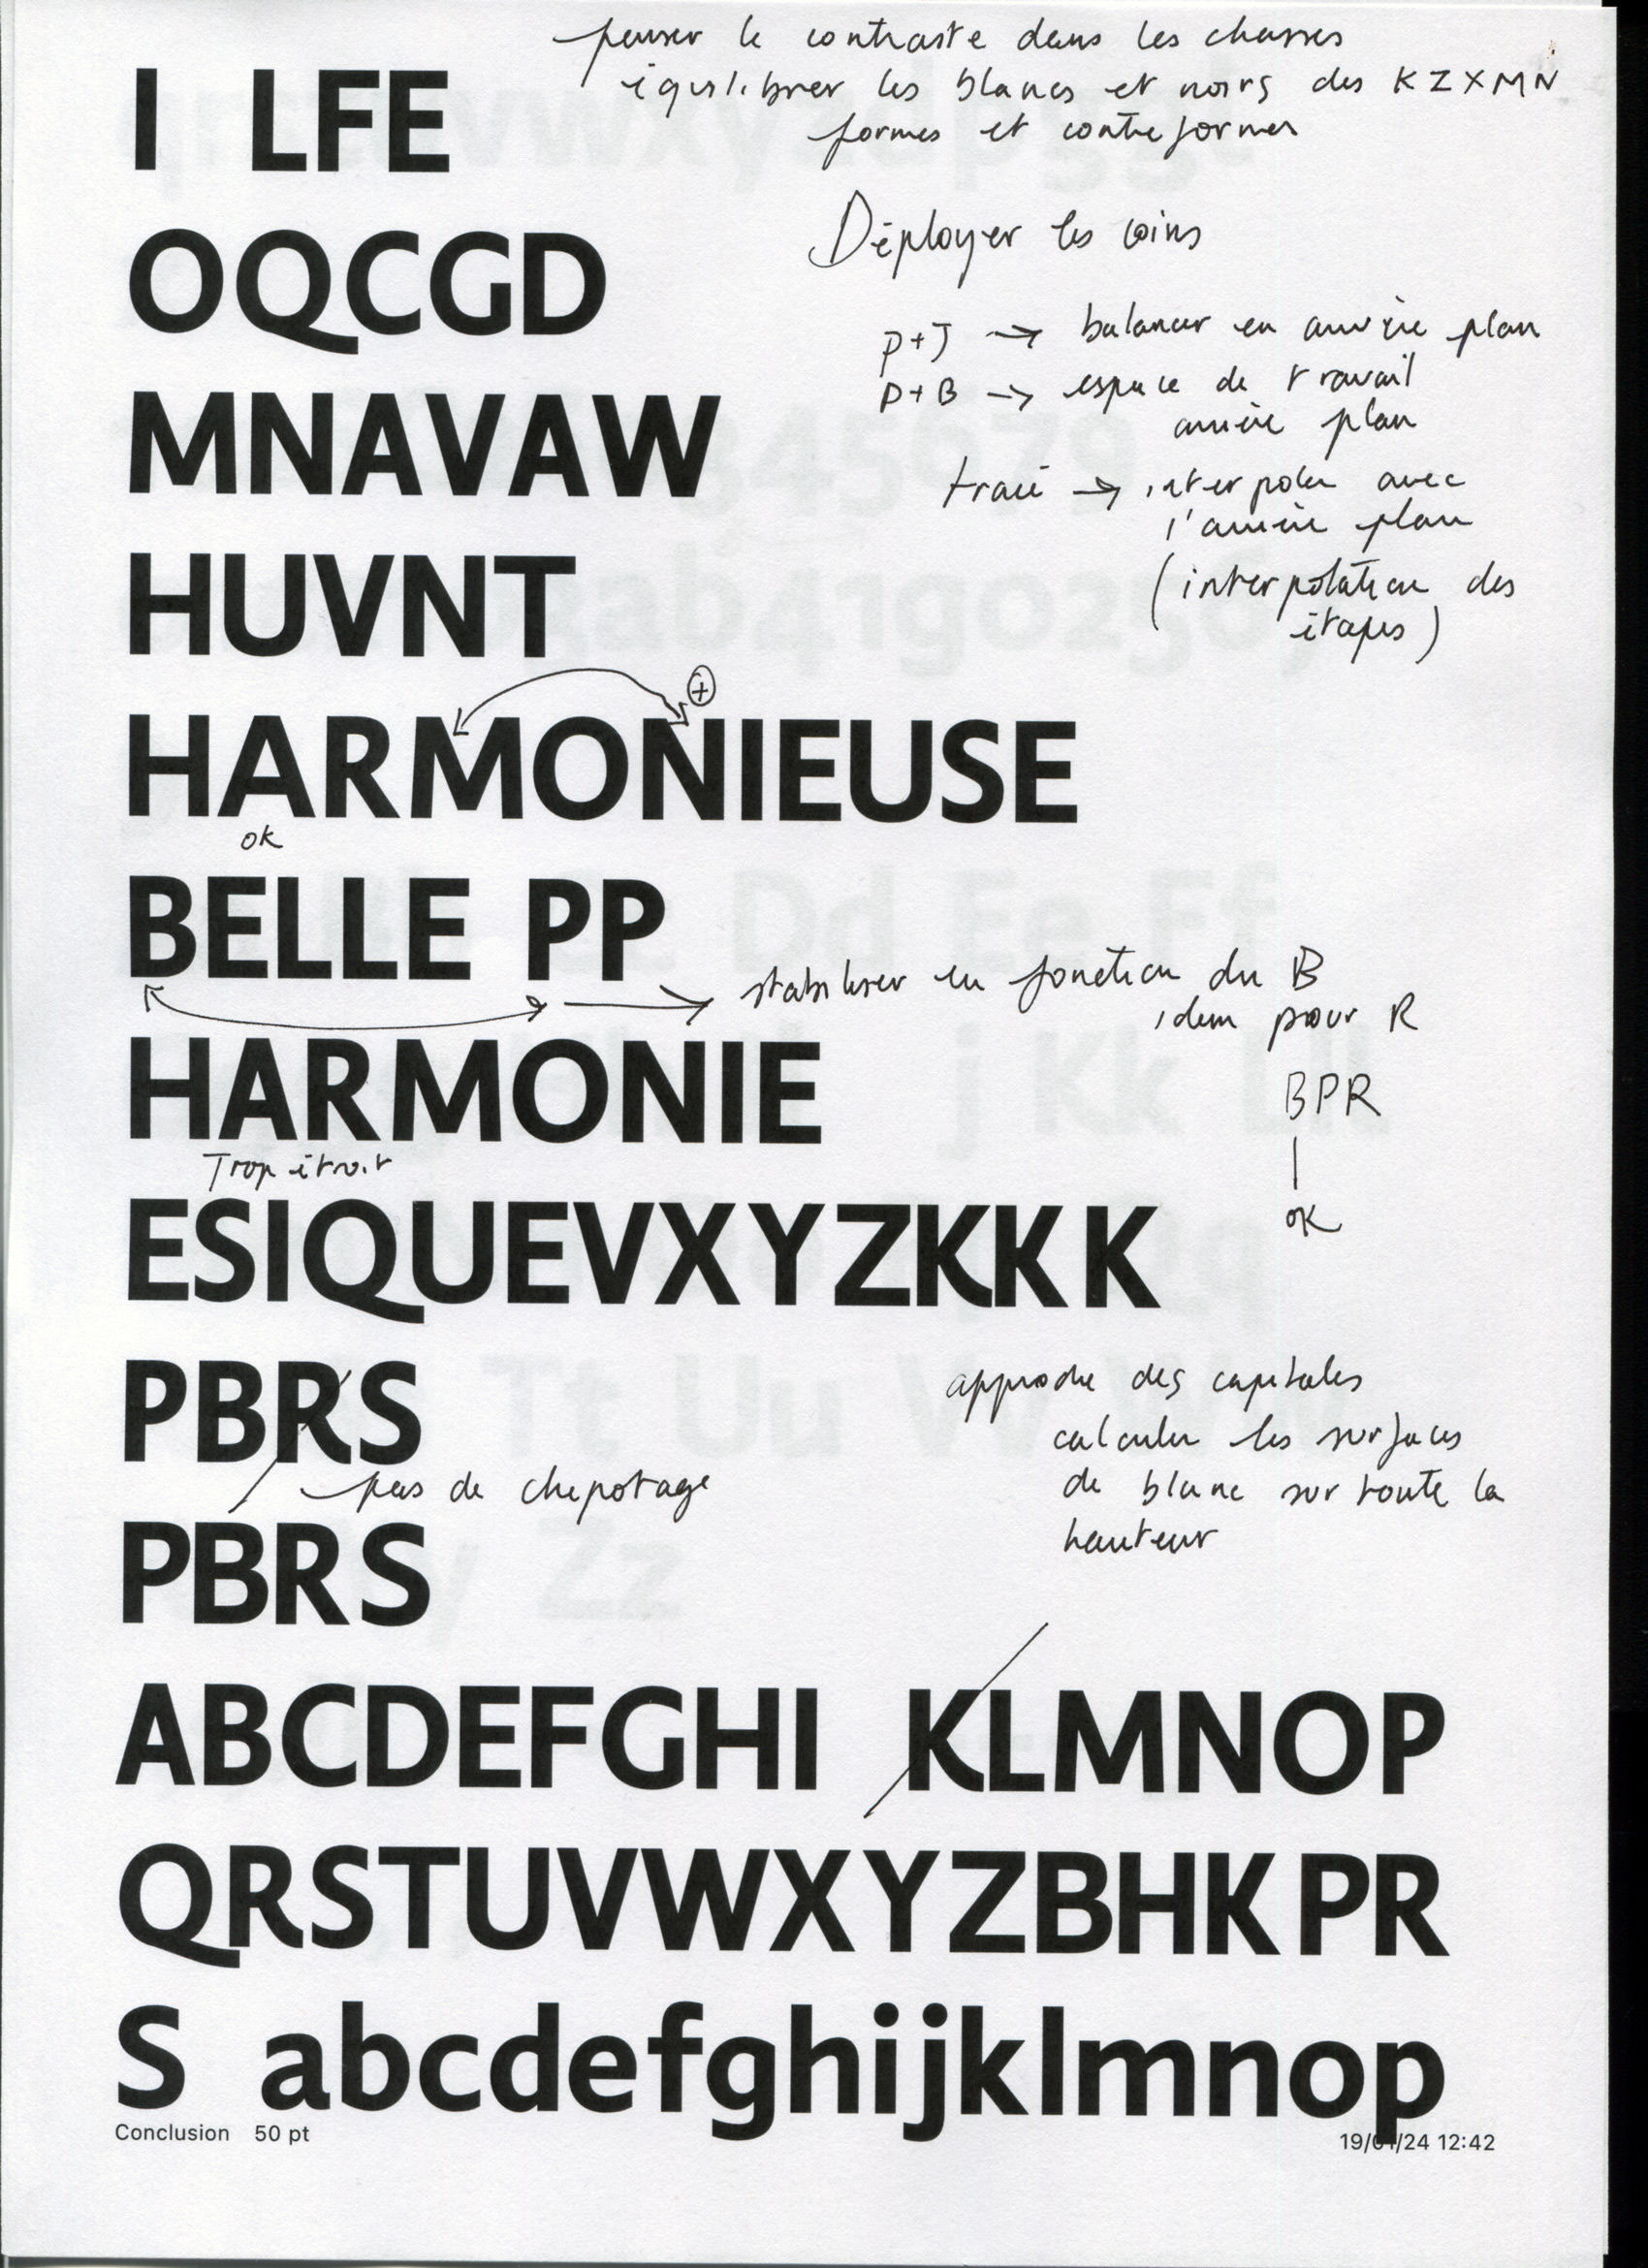 penser le contraste dans les chasses
équilibrer les blancs et noirs des KZXMN
formes et contreformes
I LFE
Déployer les coins
OQCGD
P+J → balancer en arrière plan
P+B → espace de travail
arrière plan
MNAVAW
tracé → interpoler avec
l'arrière plan
(interpolation des
étapes)
HUVNT
+
HARMONIEUSE
ok
BELLE PP
stabiliser en fonction du B
idem pour R
HARMONIE
BPR
ok
Trop étroit
ESIQUEVXYZKKK
PBRS
approche des capitales
calculer les surfaces
de blanc sur toute la
hauteur
pas de chipotage
PBRS
ABCDEFGHI KLMNOP
QRSTUVWXYZBHKPR
S abcdefghijklmnop
Conclusion 50 pt
19/01/24 12:42